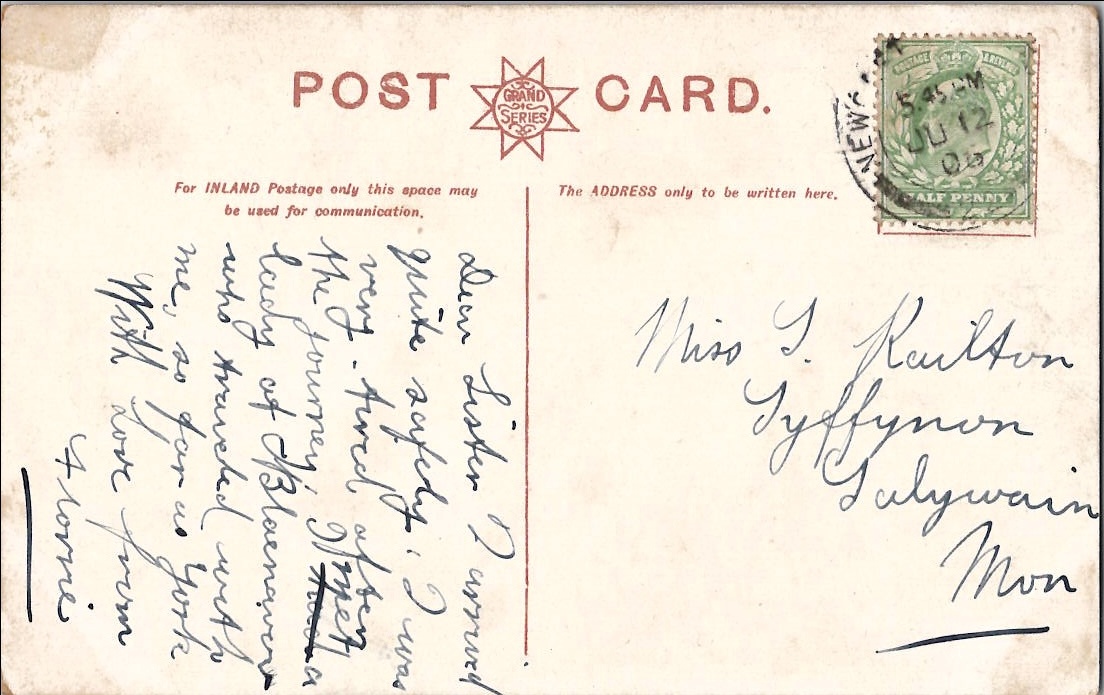 POST CARD.
GRAND
SERIES
For INLAND Postage only this space may
be used for communication.
The ADDRESS only to be written here.
POSTAGE & REVENUE
5.45 PM
JU 12
06
HALF PENNY
Dear Sister I arrived
quite safely. I was
very tired after
the journey, I met a
lady of Blaenavon
who traveled with
me, so far as York
With love from
Florrie
Miss S. Railton
Tyffynon
Talywain
Mon